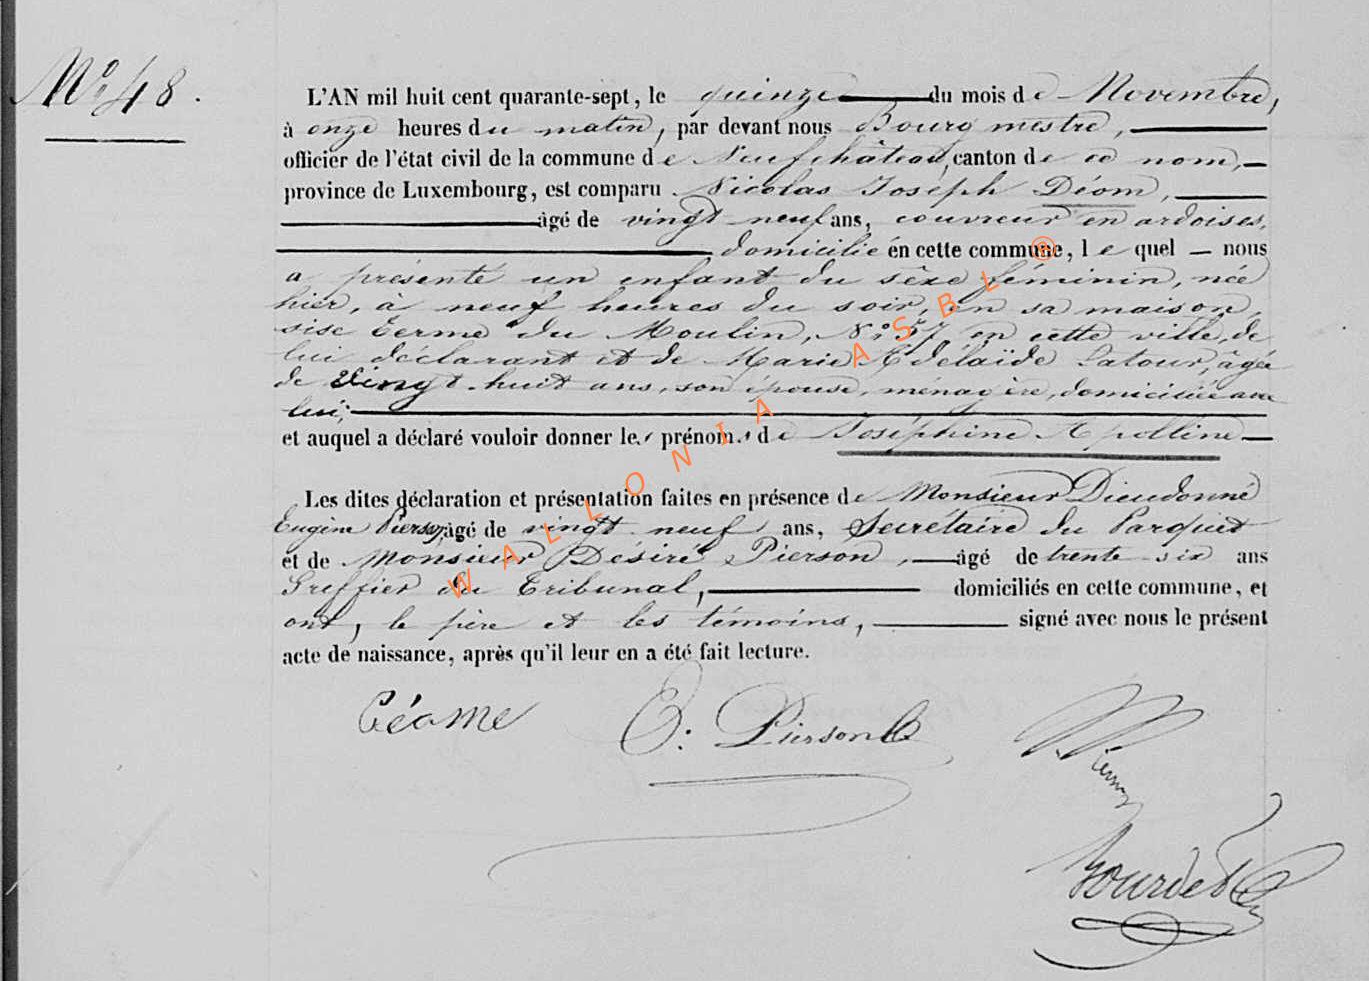 N.° 48.
L'AN mil huit cent quarante-sept, le quinze du mois de Novembre,
à onze heures du matin, par devant nous Bourgmestre,
officier de l'état civil de la commune de Neufchâteau, canton de ce nom,
province de Luxembourg, est comparu Nicolas Joseph Déom,
âgé de vingt neuf ans, couvreur en ardoises,
domicilié en cette commune, lequel nous
a présenté un enfant du sèxe féminin, née
hier, à neuf heures du soir, en sa maison,
sise Terme du Moulin, N.° 57 en cette ville, de
lui déclarant et de Marie Adélaïde Latour, âgée
de vingt-huit ans, son épouse, ménagère, domiciliée avec
lui;
et auquel a déclaré vouloir donner les prénoms de Joséphine Apolline
Les dites déclaration et présentation faites en présence de Monsieur Dieudonné
Eugène Pierson, âgé de vingt neuf ans, Secrétaire du Parquet
et de Monsieur Désiré Pierson, âgé de trente six ans
Greffier du Tribunal, domiciliés en cette commune, et
ont, le père et les témoins, signé avec nous le présent
acte de naissance, après qu'il leur en a été fait lecture.
E. Pierson
Bourdet
WALLONIA ASBL ®